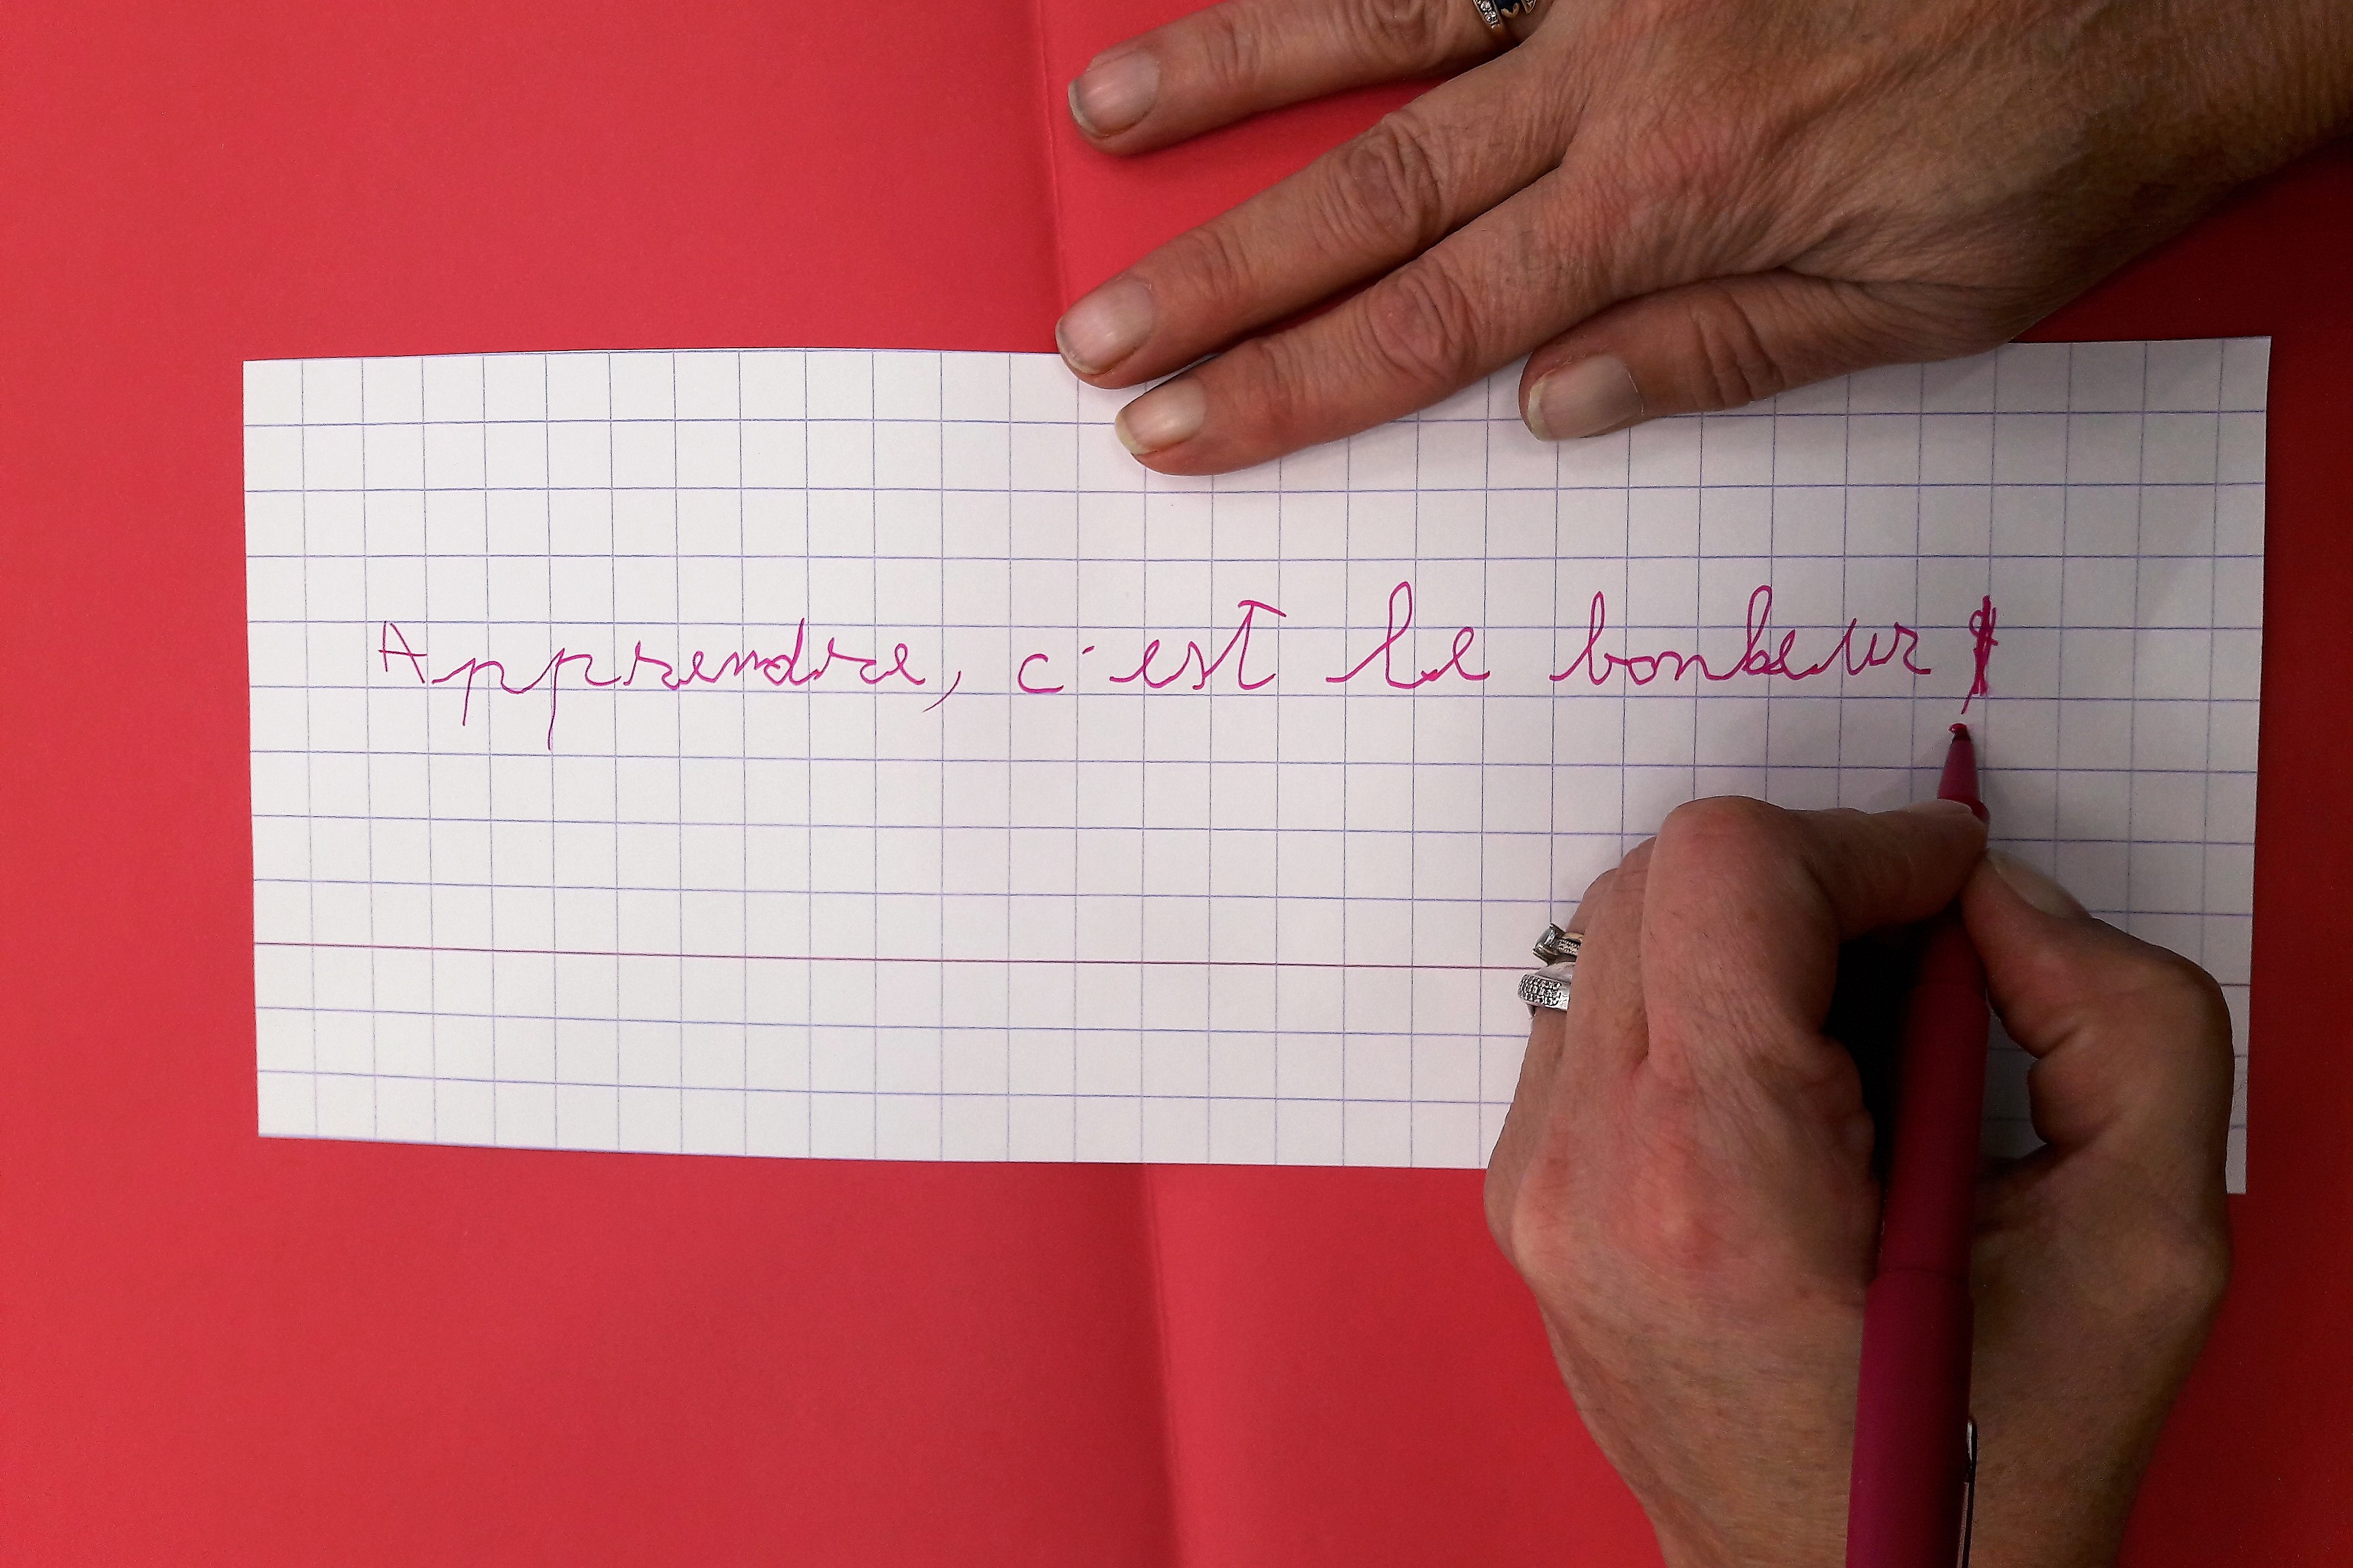 Apprendre, c'est le bonheur !